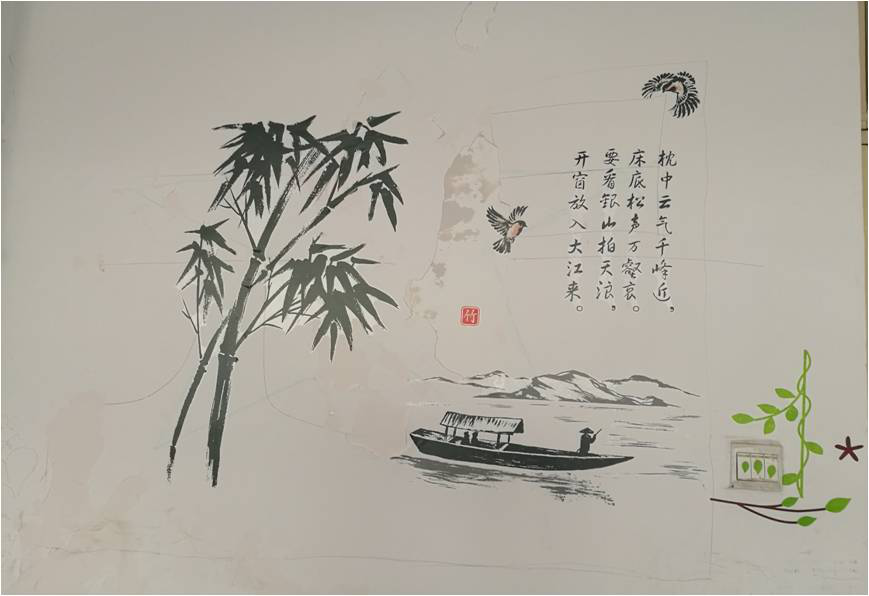 枕中云气千峰近，
床底松声万壑哀。
要看银山拍天浪，
开窗放入大江来。
竹